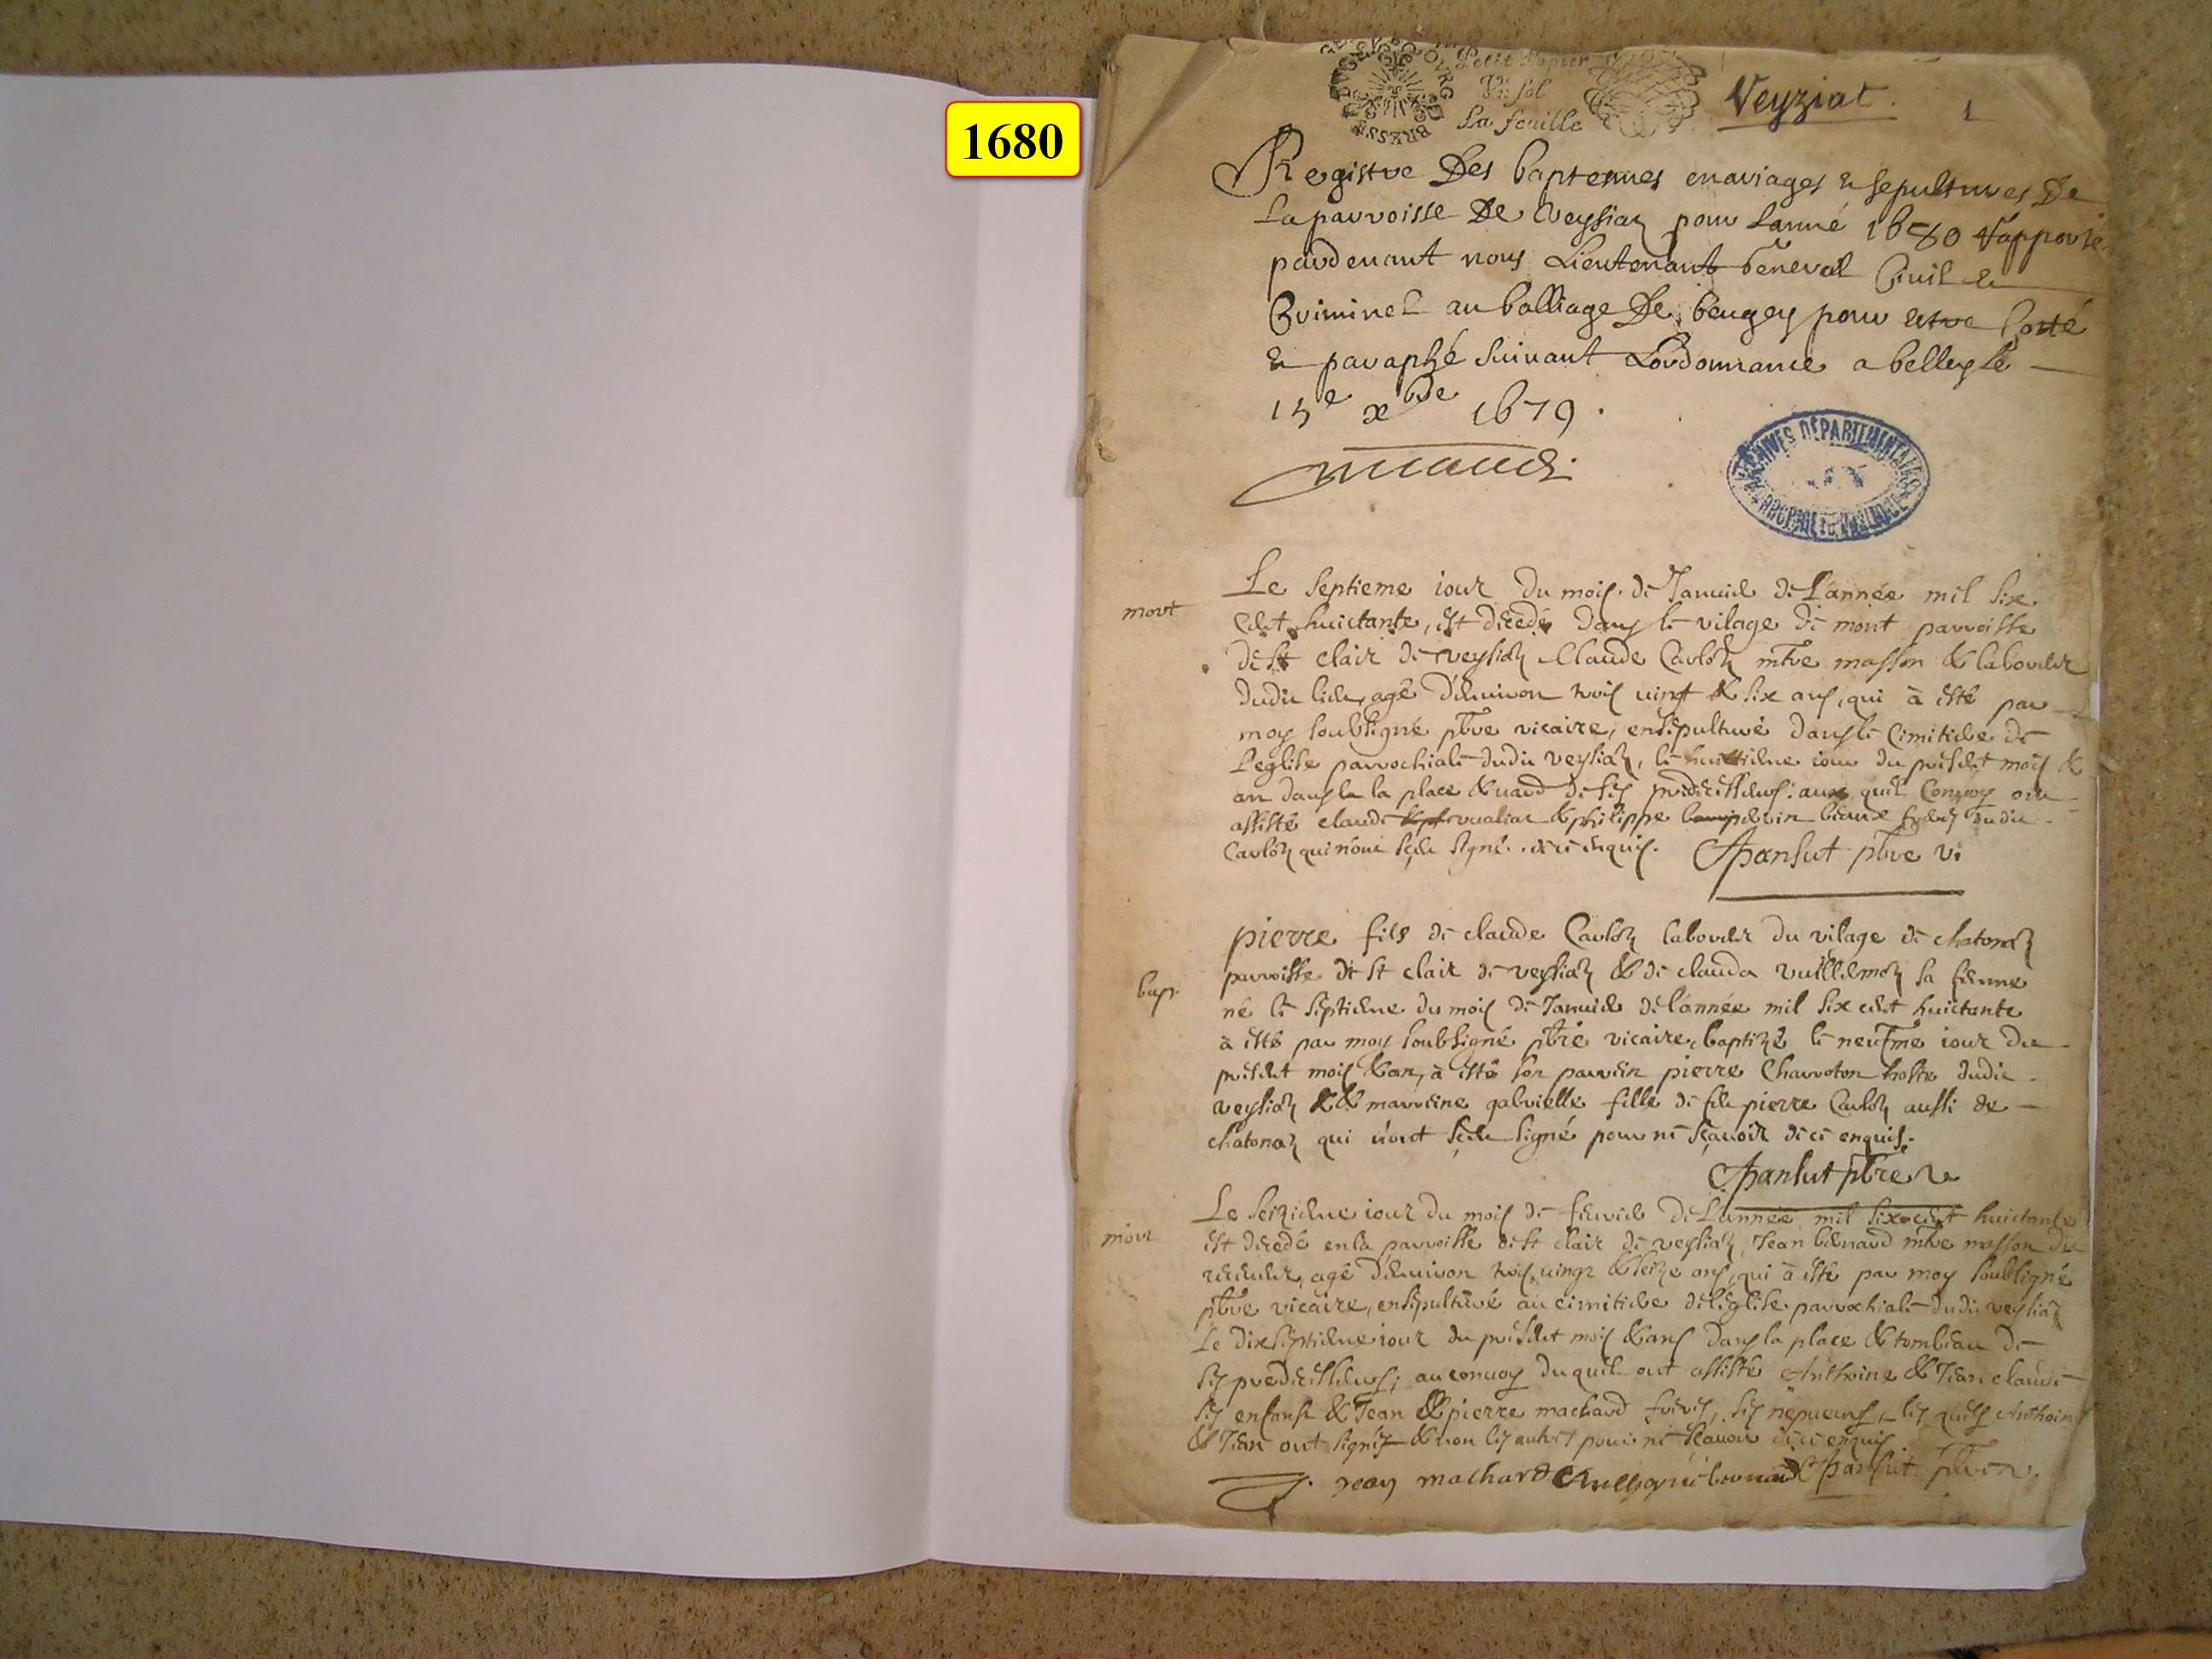 1680
Petit Papier
Vn sol
La feuille
Veyziat.
1
Registre Des baptesmes mariages & sepultures De
La parroisse De Veyssiaz pour Lanné 1680 rapporté
pardevant nous Lieutenant general Civil &
Criminel au balliage De beugey pour estre Cotté
& paraphé suivant Lordonnance a belley le
15e xbre 1679.
mort
Le septieme iour du mois de Janvier de L'année mil six
cent huictante, est decedé dans le vilage de mont parroisse
de st clair de veysiaz Claude Carloz mtre masson & laboureur
dudit lieu, agé d'environ trois vingt & six ans, qui à esté par
moy soubsigné pbre vicaire, ensepulturé dans le cimitiere de
L'eglise parrochiale dudit veysiaz, le huictieme iour du present mois &
an dans la place & de ses predecesseurs: au quel Convoy ont
assisté claude & philippe beaux freres dudit
Carloz qui n'ont sceu signé de ce enquis. Pansut pbre vi
bap.
pierre fils de claude Carloz laboureur du vilage de chatonaz
parroisse de st clair de veysiaz & de clauda vuillermoz sa femme
né le septieme du mois de Janvier de l'année mil six cent huictante
à esté par moy soubsigné pbre vicaire, baptizé le neufme iour du
present mois & an, à esté son parrein pierre Charroton hoste dudit
veysiaz & marreine gabrielle fille de feu pierre Carloz aussi de
chatonaz qui n'ont sceu signé pour ne sçavoir de ce enquis.
Pansut pbre v
mort
Le seizieme iour du mois de fevrier de L'année mil six cent huictante
est decedé en la parroisse de st clair de veysiaz, Jean bernard mtre masson du
agé d'environ trois vingt & seize ans, qui à esté par moy soubsigné
pbre vicaire, ensepulturé au cimitiere de l'eglise parrochiale dudit veysiaz
Le dixseptieme iour du present mois & ans dans la place & tombeau de
ses predecesseurs; au convoy du quel ont assisté Anthoine & Jean claude
ses enfans & Jean & pierre machard freres, ses nepveurs, les quels Anthoine
& Jean ont signez & non les autres pour ne sçavoir de ce enquis
jean machard Anthoyne bernard Pansut pbre v
ARCHIVES DÉPARTEMENTALES